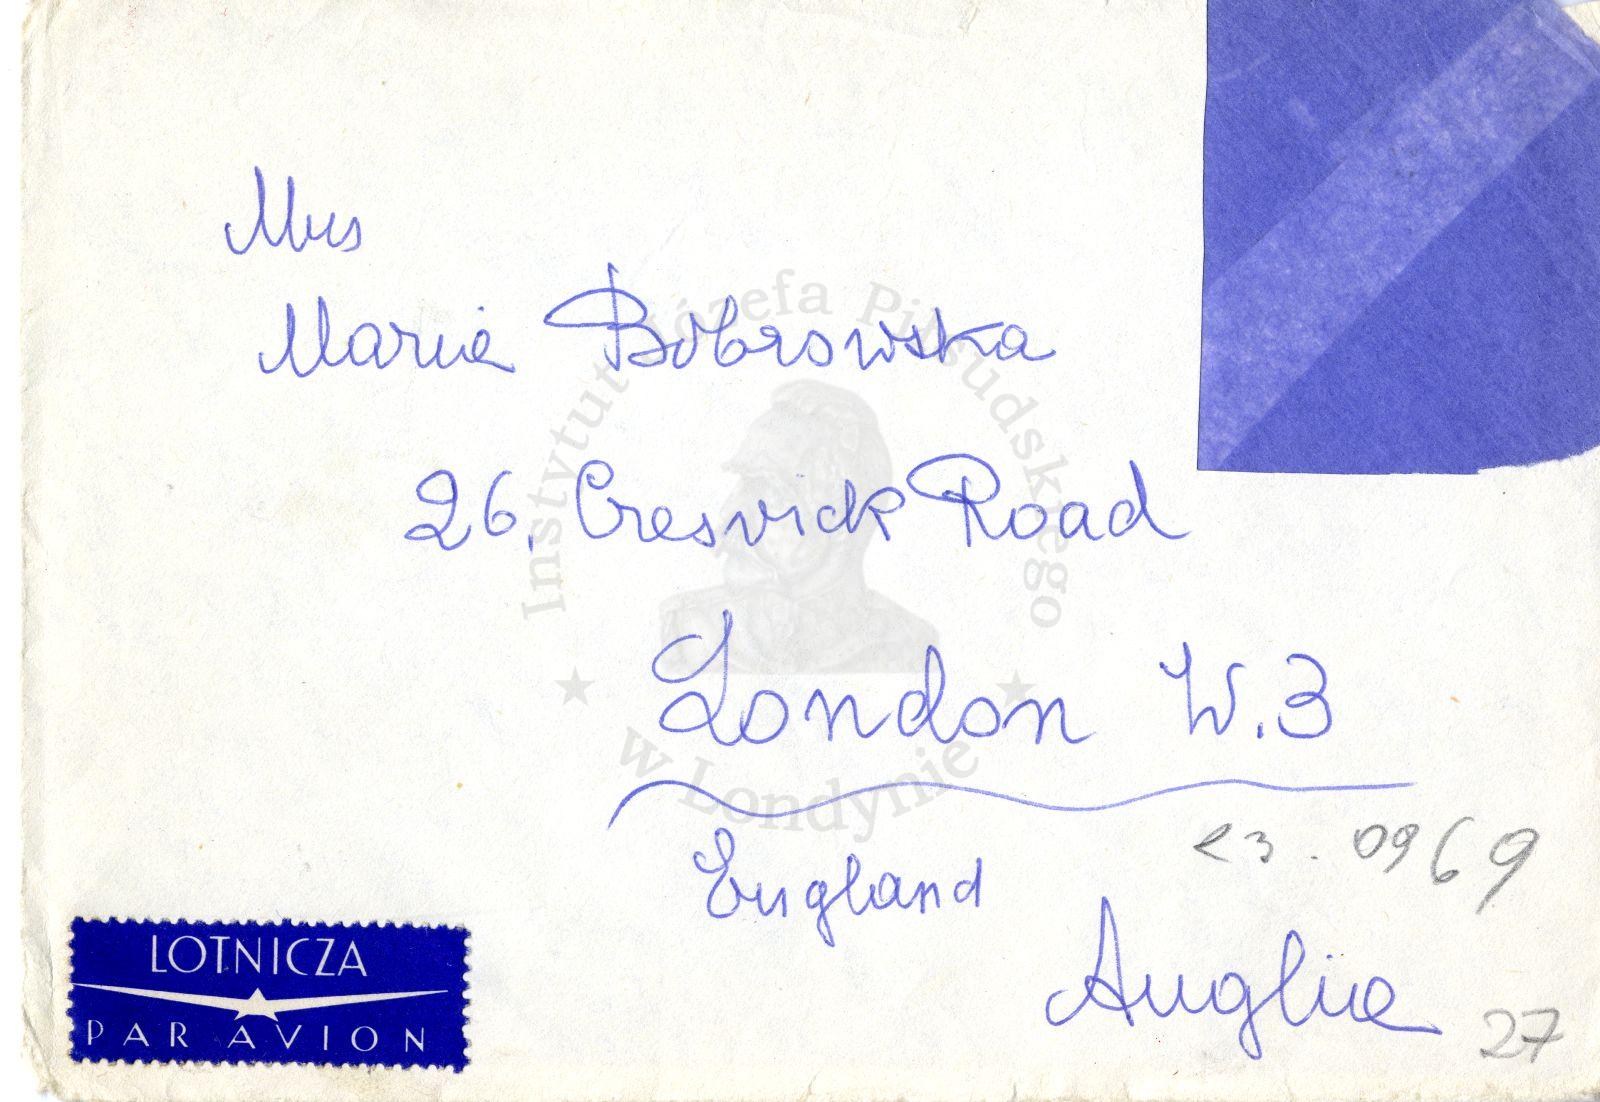 Mrs
Maria Bobrowska
26, Cresvick Road
London W.3
England
23.0969
Anglia
27
LOTNICZA
PAR AVION
Instytut Józefa Piłsudskiego
w Londynie